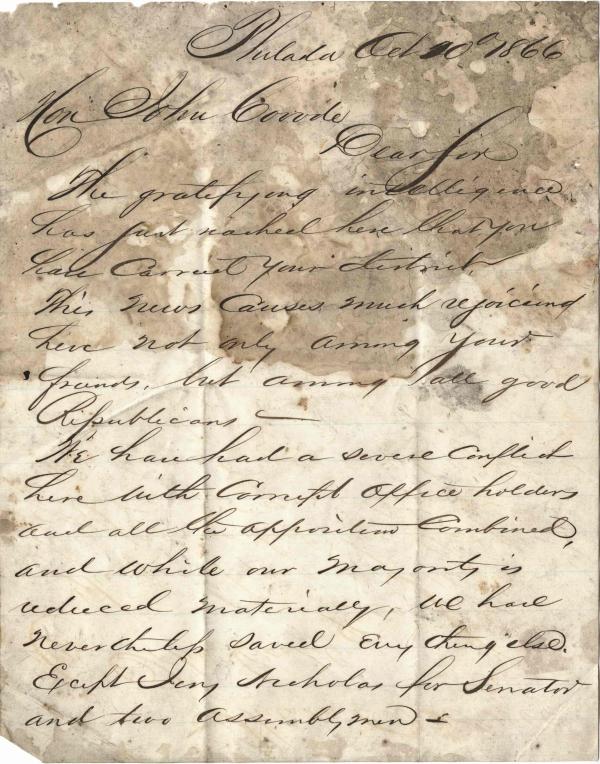 Philada Oct 10th 1866
Hon John Covode
Dear Sir
The gratifying intelligence
has just reached here that you
have Carried your district.
This news Causes much rejoicing
here not only among your
friends, but among all good
Republicans —
We have had a severe Conflict
here with Corrupt Office holders
and all the opposition Combined,
and while our Majority is
reduced materially, we have
nevertheless saved every thing else.
Except Jerry Nicholas for Senator
and two Assemblymen —